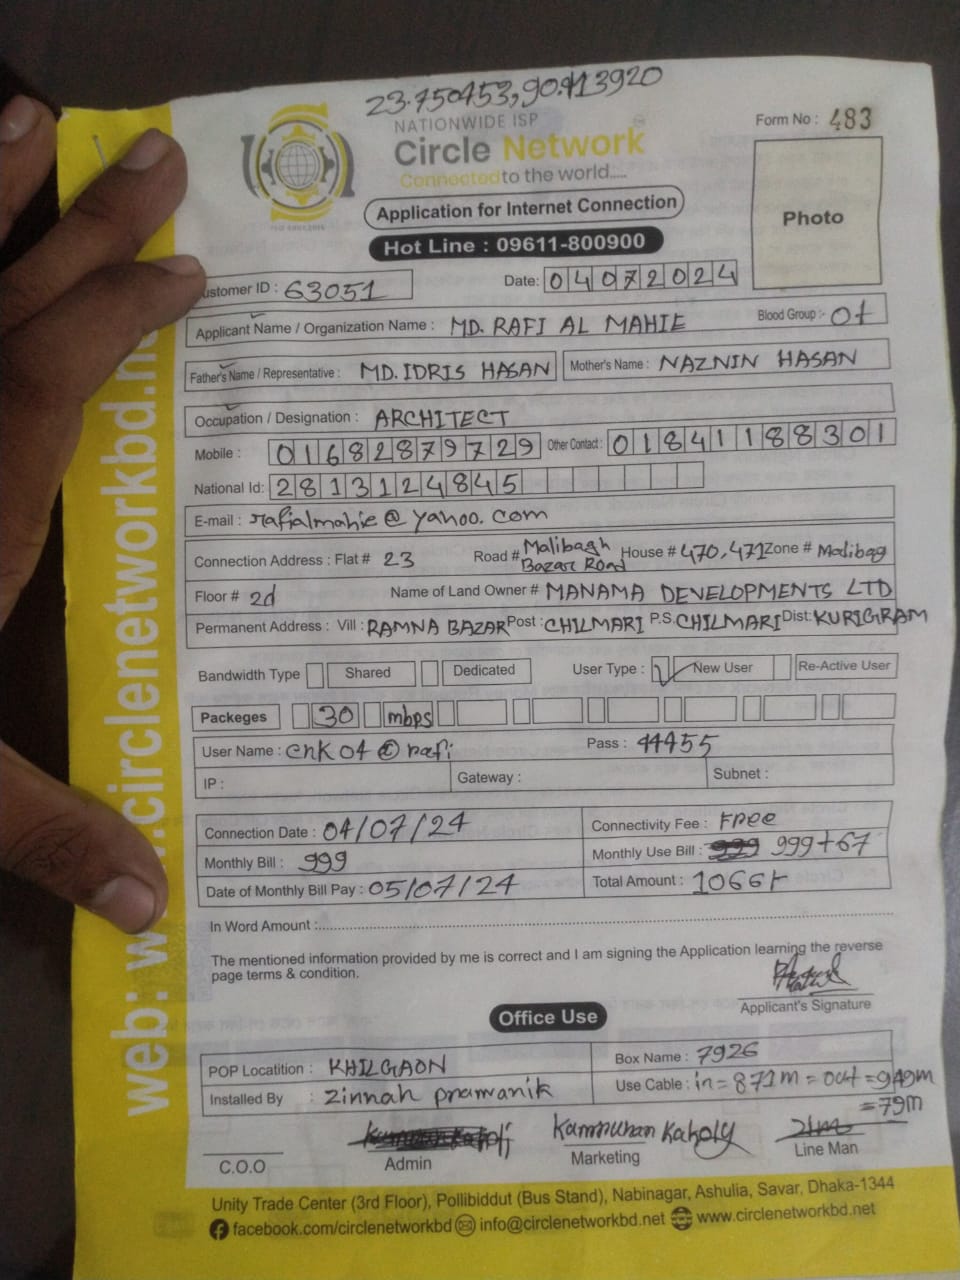 23.750453,90.413920
NATIONWIDE ISP
Circle Network
Connected to the world.....
Form No : 483
Photo
Application for Internet Connection
Hot Line : 09611-800900
ustomer ID : 63051 Date: 04072024
Applicant Name / Organization Name : MD. RAFI AL MAHIE Blood Group :- O+
Father's Name / Representative : MD. IDRIS HASAN Mother's Name : NAZNIN HASAN
Occupation / Designation : ARCHITECT
Mobile : 01682879729 Other Contact : 01841188301
National Id: 2813124845
E-mail : rafialmahie@yahoo.com
Connection Address : Flat # 23 Road # Malibagh Bazar Road House # 470,471 Zone # Malibag
Floor # 2d Name of Land Owner # MANAMA DEVELOPMENTS LTD
Permanent Address : Vill : RAMNA BAZAR Post : CHILMARI P.S. CHILMARI Dist: KURIGRAM
Bandwidth Type Shared Dedicated User Type : New User Re-Active User
Packeges 30 mbps
User Name : cnk04@rafi Pass : 44455
IP : Gateway : Subnet :
Connection Date : 04/07/24 Connectivity Fee : Free
Monthly Bill : 999 Monthly Use Bill : 999+67
Date of Monthly Bill Pay : 05/07/24 Total Amount : 1066
In Word Amount :
The mentioned information provided by me is correct and I am signing the Application learning the reverse
page terms & condition.
Applicant's Signature
Office Use
POP Locatition : KHILGAON Box Name : 7926
Installed By : Zinnah pramanik Use Cable : in = 871m = out = 949m
= 79m
Kamruhan Kakoly
C.O.O Admin Marketing Line Man
Unity Trade Center (3rd Floor), Pollibiddut (Bus Stand), Nabinagar, Ashulia, Savar, Dhaka-1344
facebook.com/circlenetworkbd info@circlenetworkbd.net www.circlenetworkbd.net
web: w .circlenetworkbd.ne